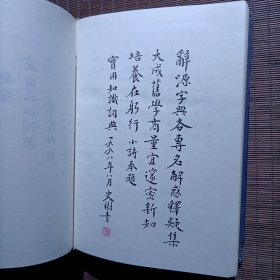 辭源字典各專名解惑釋疑集
大成舊學商量宜邃密新知
培養在躬行 小詩奉題
實用知識詞典一九九八年八月史樹青